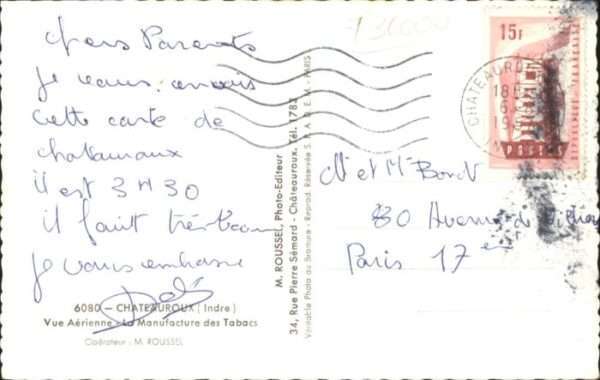 chers Parents
je vous envois
cette carte de
chateauroux
il est 3H30
il fait très beau
je vous embrasse
6080 - CHATEAUROUX (Indre)
Vue Aérienne - La Manufacture des Tabacs
Opérateur : M. ROUSSEL
M. ROUSSEL, Photo-Editeur
34, Rue Pierre Sémard - Châteauroux, Tél. 1783
Véritable Photo au Bromure - Reprod. Réservée S.A.R.D.E.M. - PARIS
15F
POSTES
CHATEAUROUX
18H
M et Me
80 Avenue de
Paris 17